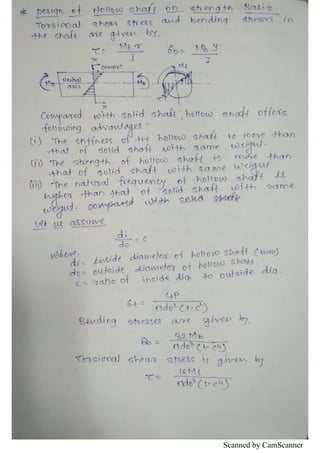 * Design of Hollow shaft on strength Basis
Torsional shear stress and bending stresses in
the shaft are given by,
τ = Mt r / J   σb = Mb y / I
x compn
Mb Neutral axis Mb Mt
x
Compared with solid shaft, hollow shaft offers
following advantages:
(i) The stiffness of the hollow shaft is more than
that of solid shaft with same weight.
(ii) The strength of hollow shaft is more than
that of solid shaft with same weight
(iii) The natural frequency of hollow shaft is
higher than that of solid shaft with same
weight. compared with solid shaft
let us assume,
di / do = c
Where,
di = inside diameter of hollow shaft (mm)
do = outside diameter of hollow shaft
c = ratio of inside dia. to outside dia.
σt = 4P / πdo²(1-c²)
Bending stresses are given by,
σb = 32 Mb / πdo³(1-c4)
Torsional shear stress is given by
τ = 16Mt / πdo³(1-c4)
Scanned by CamScanner